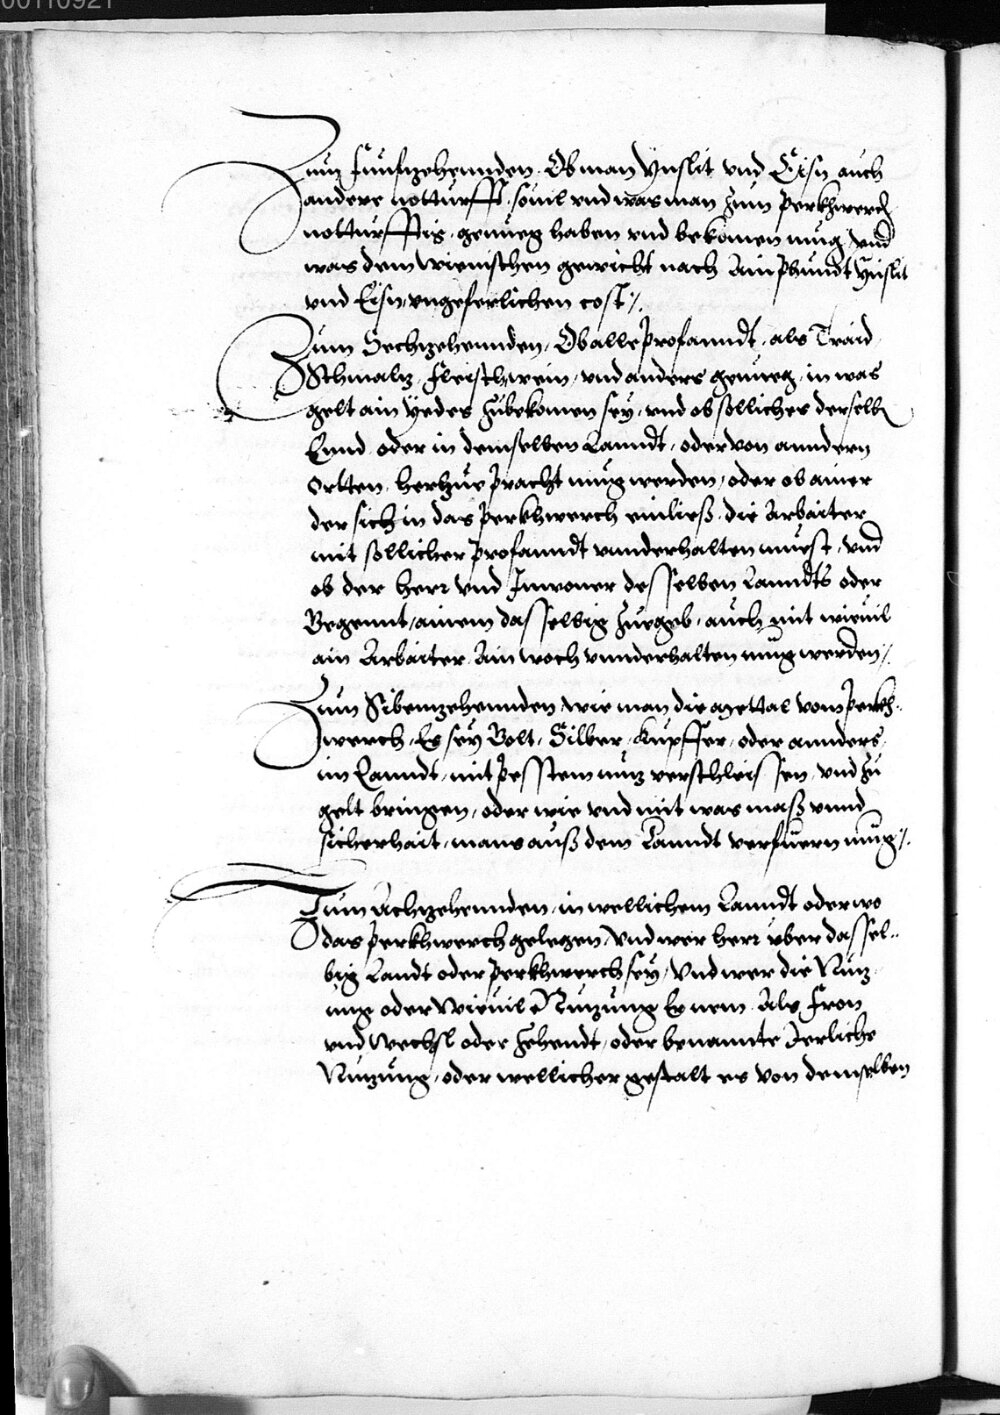 00110921
Zum Funfzehennden. Ob man Ynslit vnd Eisn auch
andere notturfft, souil vnd was man zum Perkhwerch
notturfftig, genueg haben vnd bekomen mug, vnd
was dem wienischen gewicht nach Ain Phundt Ynslit
vnd Eisn, vngeferlichen cost /.
Zum Sechzehennden, Ob alle Profanndt, als Traid
Schmalz, Fleisch, wein, vnd anders genueg, in was
gelt ain Yedes zubekomen sey, vnd ob sollicher derselbn
Ennd oder in demselben Lanndt, oder von anndern
Ortten, herzue Pracht mug werden, oder ob ainer
der sich in das Perkhwerch einließ, die Arbaiter
mit sollicher Profanndt vnnderhalten muest, vnd
ob der herr vnd Inwoner desselben Lanndts oder
Regennt, ainem dasselbig zuegeb, auch mit wieuil
ain Arbaiter Ain woch vnnderhalten mug werden /.
Zum Sibenzehennden, wie man die Mettal vom Perkh-
werch, Es sey Golt, Silber, Kupffer, oder annders,
im Lanndt, mit Pesstem nuz verschleissen, vnd zu
gelt bringen, oder wie vnd mit was maß vnnd
sicherhait, mans auß dem Lanndt verfuern mug /.
Zum Achzehennden, in wellichem Lanndt oder wo
das Perkhwerch gelegen, vnd wer herr vber dassel-
big Landt oder Perkhwerch sey, Vnd wer die Nuz-
ung oder Wieuil Er Nuzung Er nem, Als Fron
vnd Wechsl oder Zehendt, oder benannte Jerliche
Nuzung, oder wellicher gestalt er von demselben